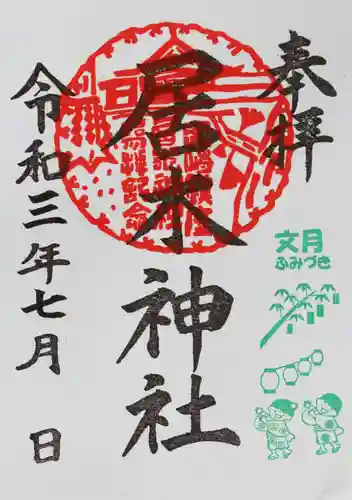 奉拝
居木神社
令和三年七月 日
文月
ふみづき